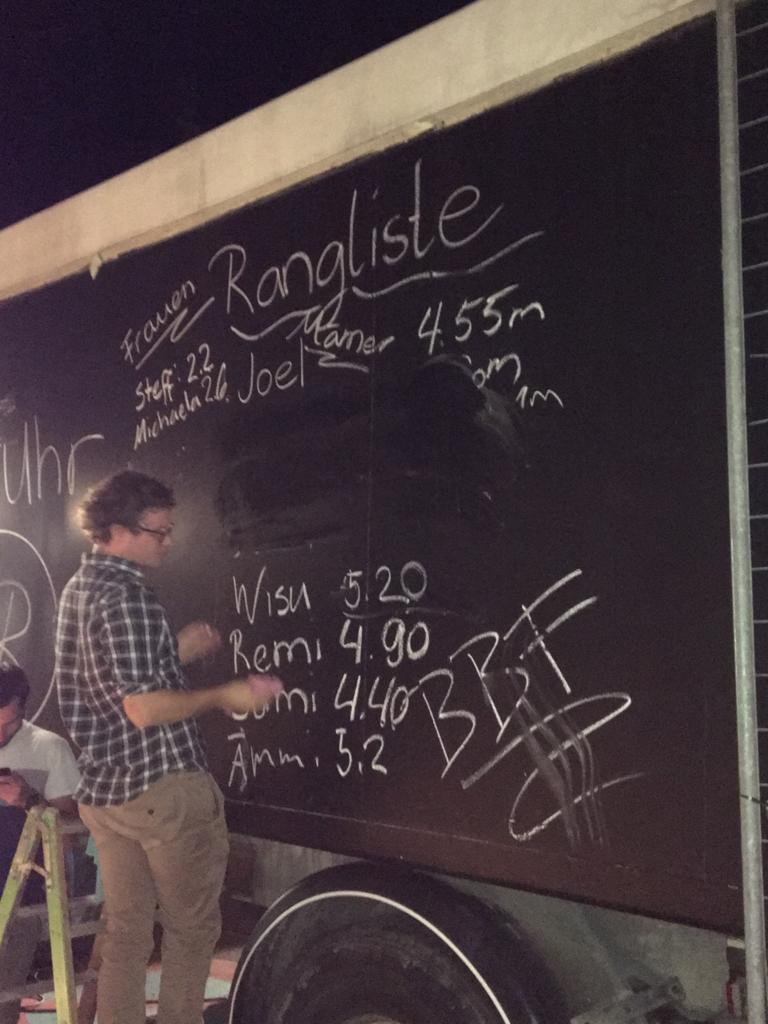 Rangliste
Frauen
Steff: 2.2
Michaela 2.6
Joel
4.55m
m
1m
Uhr
R
Wisu 5.20
Remi 4.90
4.40
Ämmi 5.2
BBF